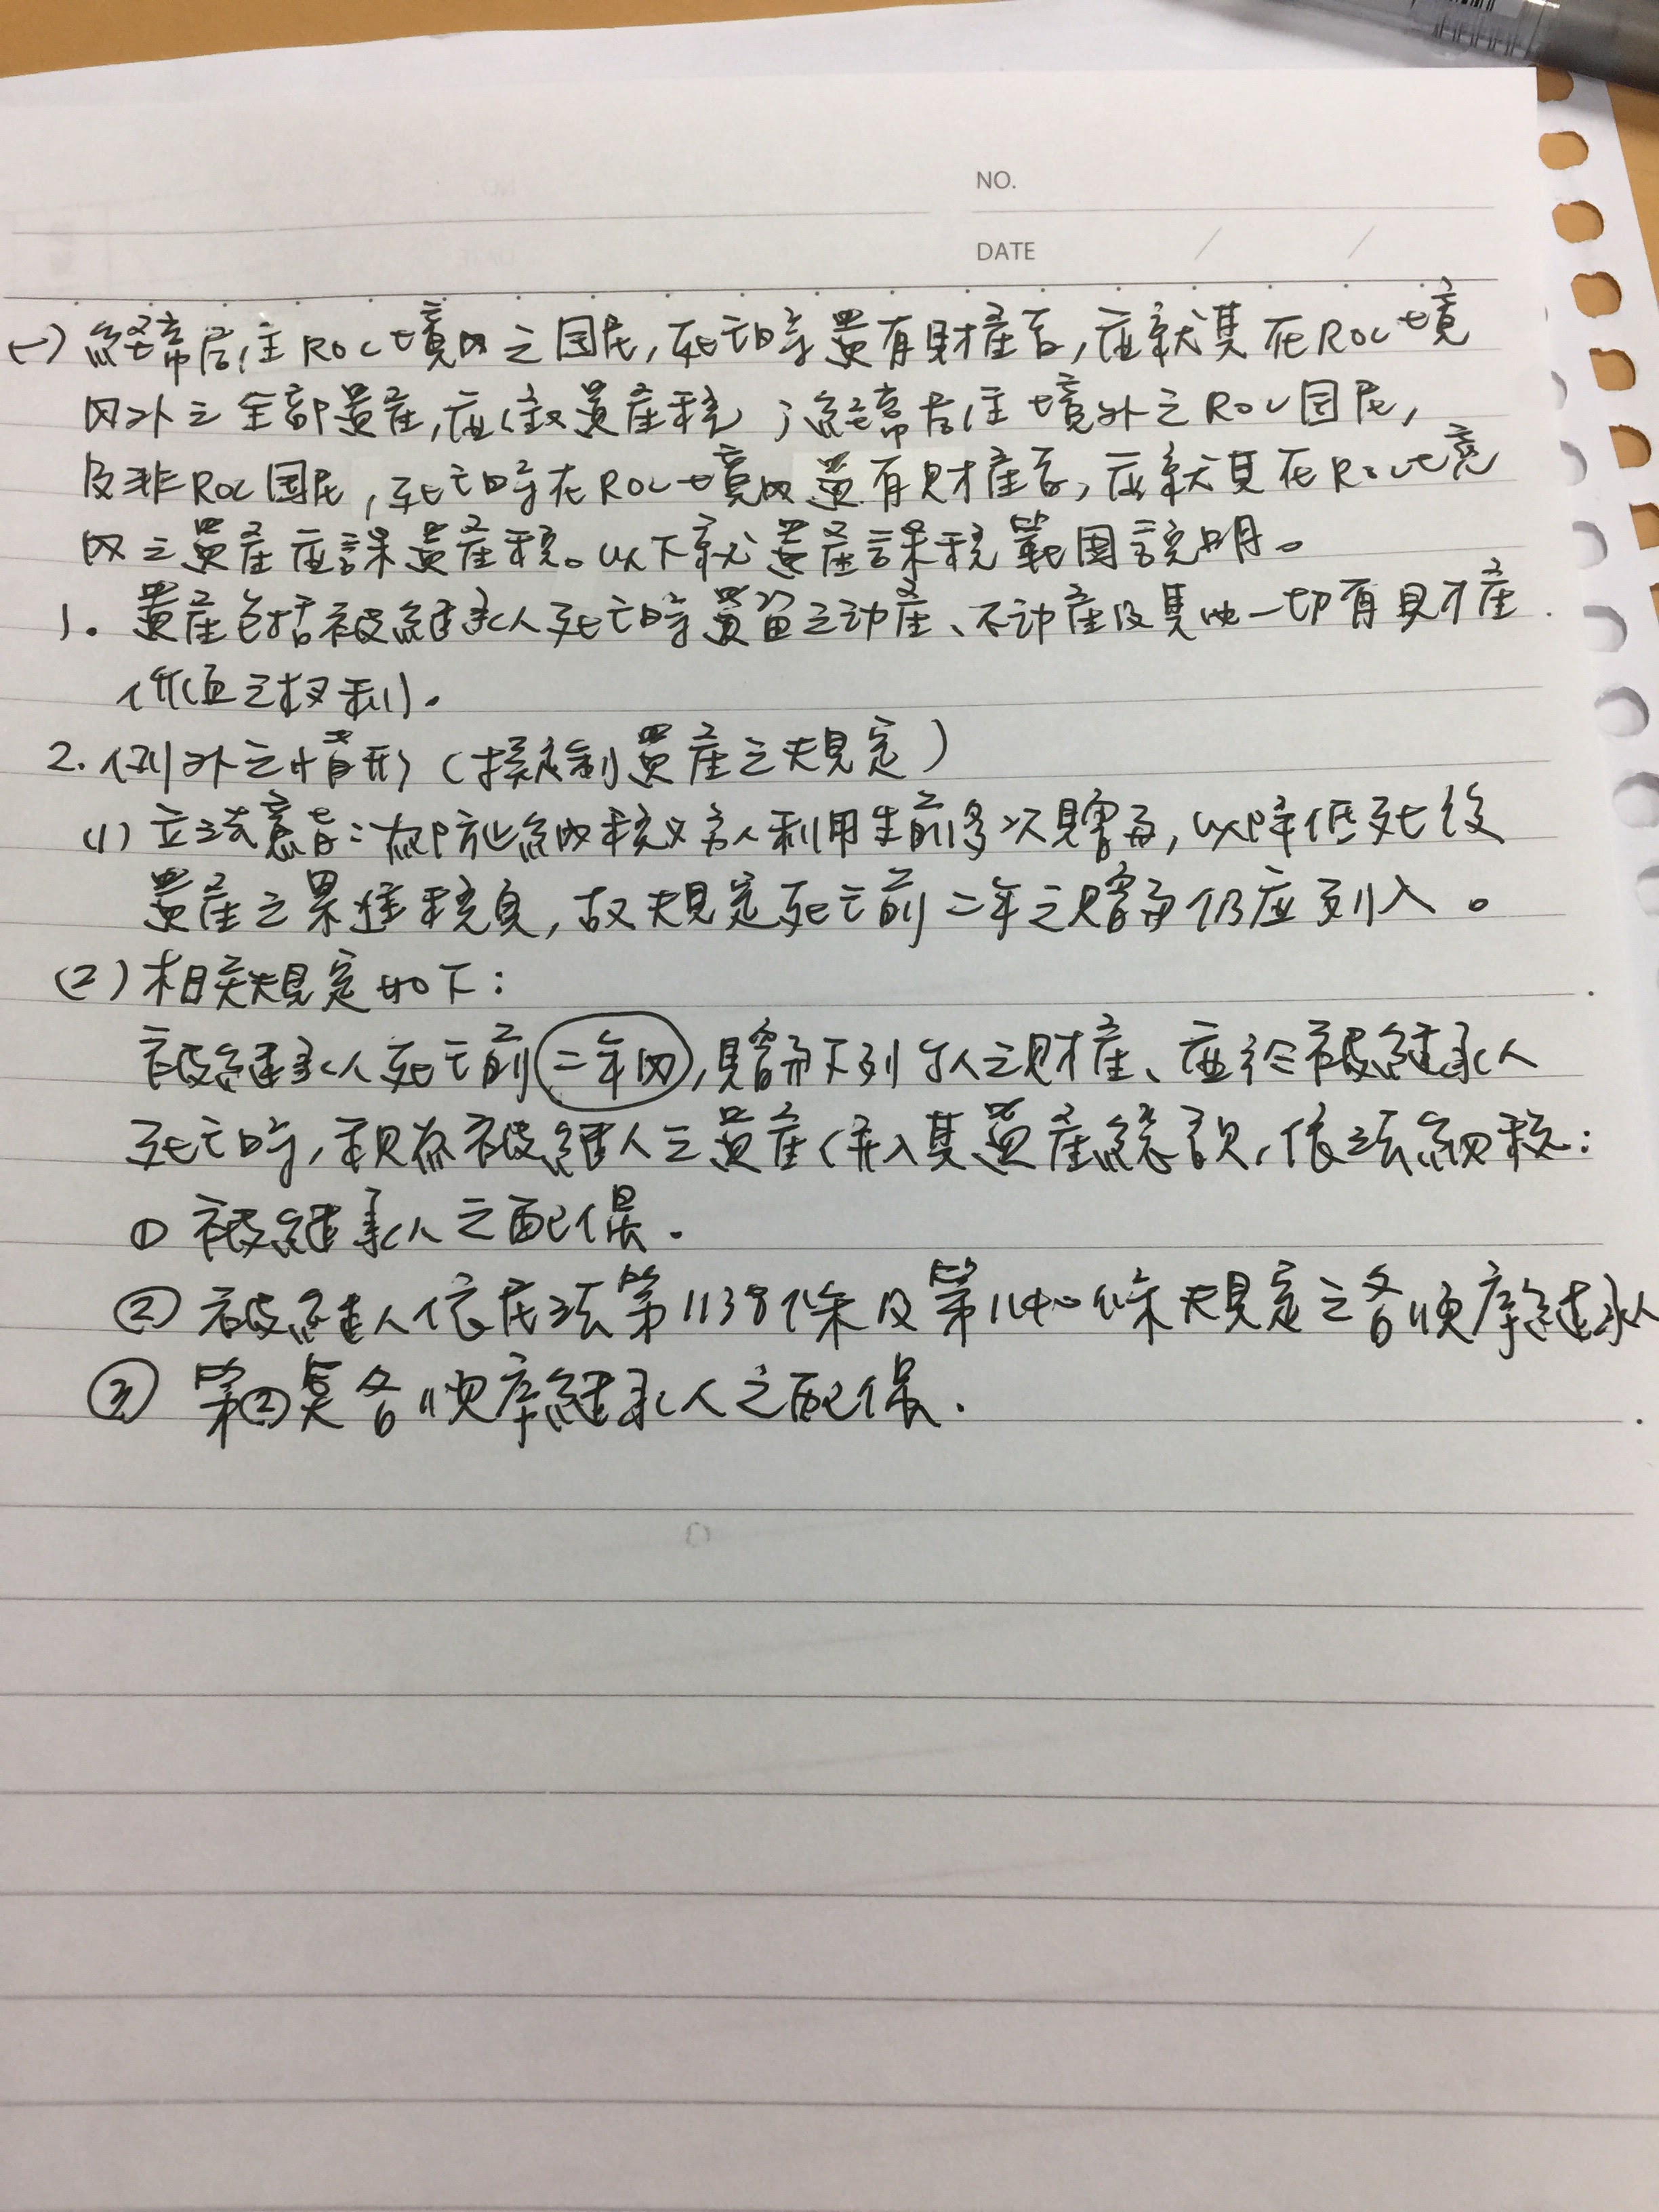 NO.
DATE / /
(一) 經常居住ROC境內之国民,死亡時遺有財產者,應就其在ROC境
內外之全部遺產,應徵遺產稅;經常居住境外之ROC国民,
及非ROC国民,死亡時在ROC境內遺有財產者,應就其在ROC境
內之遺產應課遺產稅。以下就遺產課稅範圍說明。
1. 遺產包括被繼承人死亡時遺留之动產、不动產及其他一切有具才產
价值之权利。
2. 例外之情形(擬制遺產之規定)
(1) 立法意旨:為防範納稅义务人利用生前多次贈与,以降低死後
遺產之累進稅負,故規定死亡前二年之贈与仍应列入。
(2) 相关規定如下:
被繼承人死亡前二年內,贈与下列个人之財產、應於被繼承人
死亡時,視為被繼人之遺產(併入其遺產總額,依法納稅:
① 被繼承人之配偶.
② 被繼人依民法第1138條及第1140條規定之各順序繼承人
③ 第②点各順序繼承人之配偶.